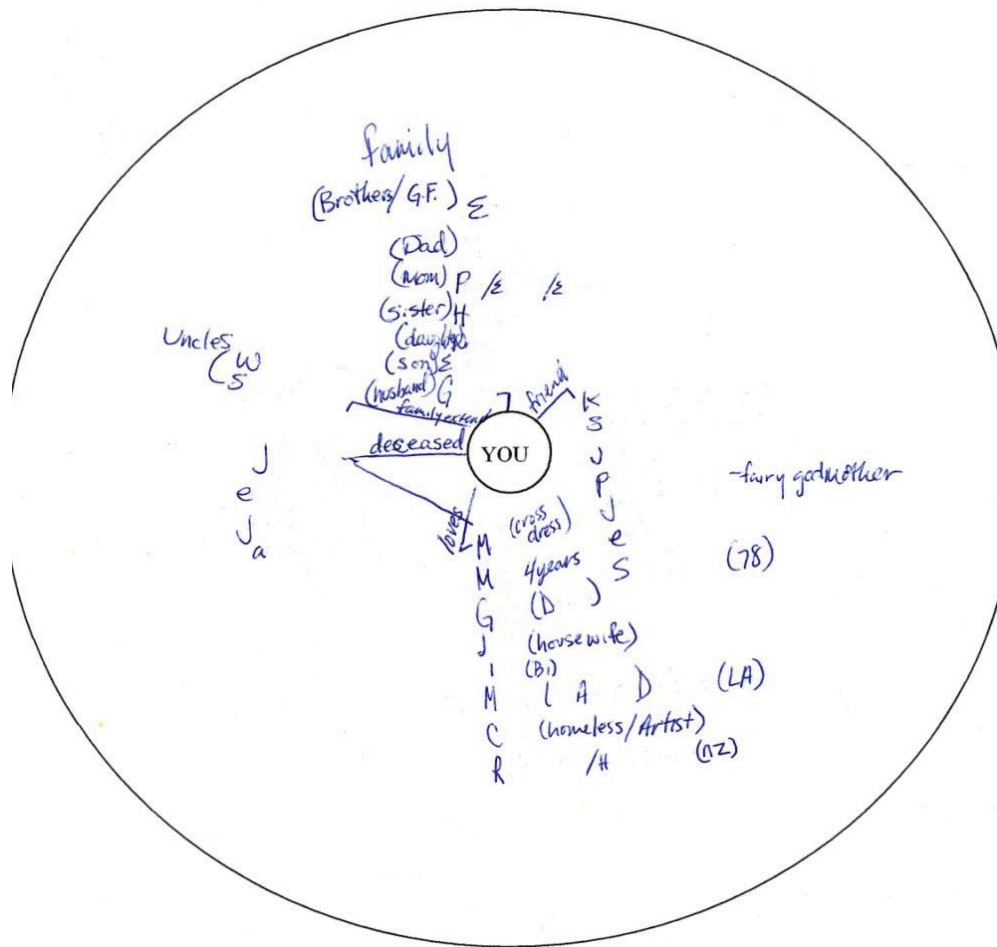 family
(Brothers/G.F.) E
(Dad)
(mom) P /E /E
(sister) H
(daughter)
(son) E
(husband) G
family extend
Uncles
(W
S
deceased
J
e
J
a
YOU
friend
K
S
J
P
J
e
S
-fairy godmother
(78)
loves
M (cross dress)
M 4years
G (D )
J (housewife)
I (Bi)
M ( A D (LA)
C (homeless/Artist)
R /H (NZ)